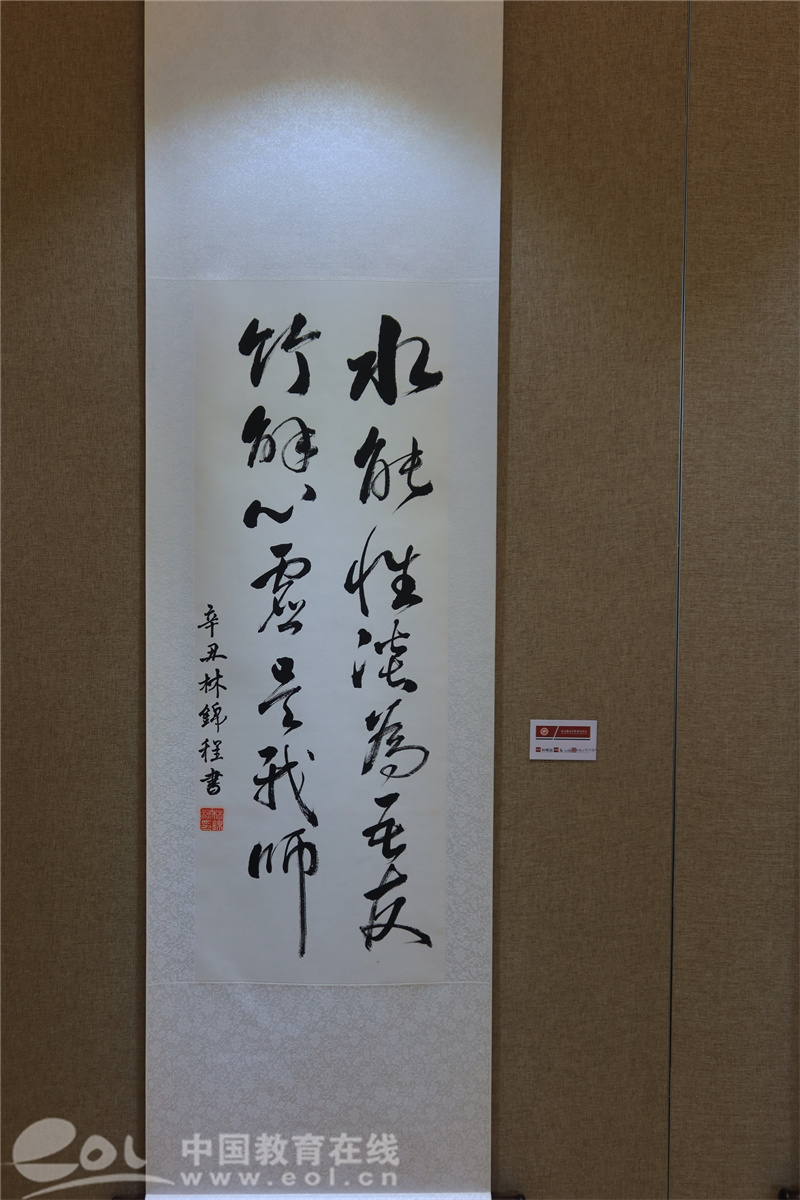 水能性淡為吾友
竹解心虛是我師
辛丑林錦程書
eol 中国教育在线
www.eol.cn